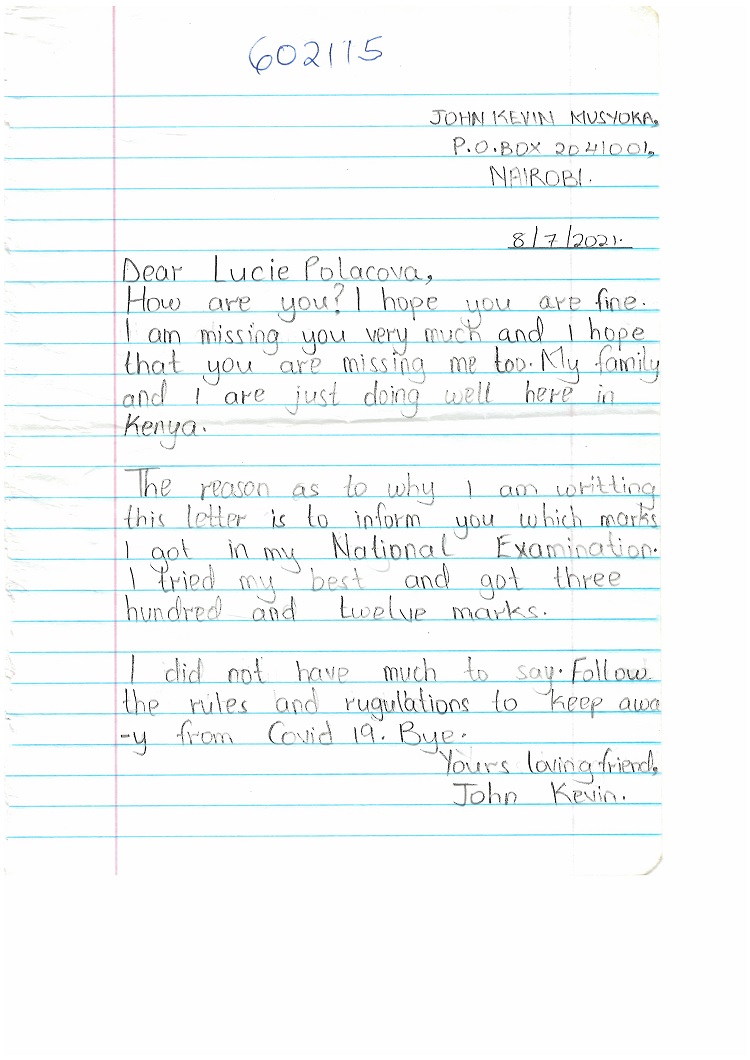 602115
JOHN KEVIN MUSYOKA,
P.O.BOX 2041001,
NAIROBI.
8/7/2021.
Dear Lucie Polacova,
How are you? I hope you are fine.
I am missing you very much and I hope
that you are missing me too. My family
and I are just doing well here in
Kenya.
The reason as to why I am writting
this letter is to inform you which marks
I got in my National Examination.
I tried my best and got three
hundred and twelve marks.
I did not have much to say. Follow
the rules and rugulations to keep awa
-y from Covid 19. Bye.
Yours loving friend,
John Kevin.